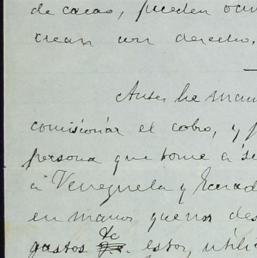 de cacao, pueden ocu
crean un derecho.
Antes he man
comisionar el cobro, y p
persona que tome a se
á Venezuela y Ecuad
en manos, quenos des
gastos de estos, utili